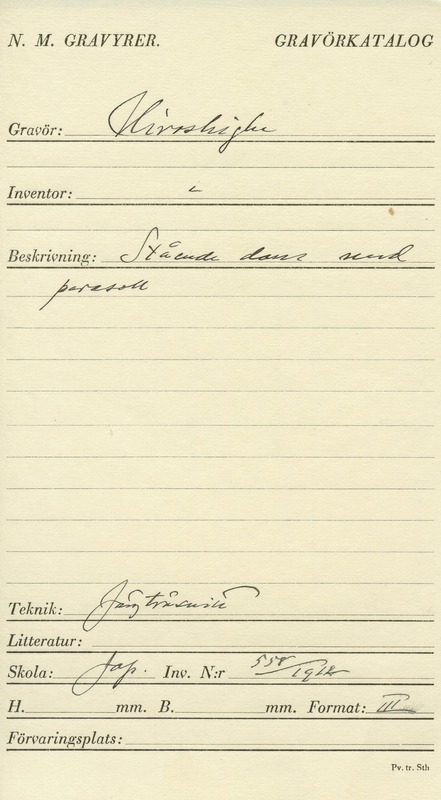 N. M. GRAVYRER. GRAVÖRKATALOG
Gravör: Hiroshighe
Inventor: "
Beskrivning: Stående dam med
parasoll
Teknik: Färgträsnitt
Litteratur:
Skola: Jap. Inv. N:r 558/1912
H. mm. B. mm. Format: III
Förvaringsplats:
Pv. tr. Sth